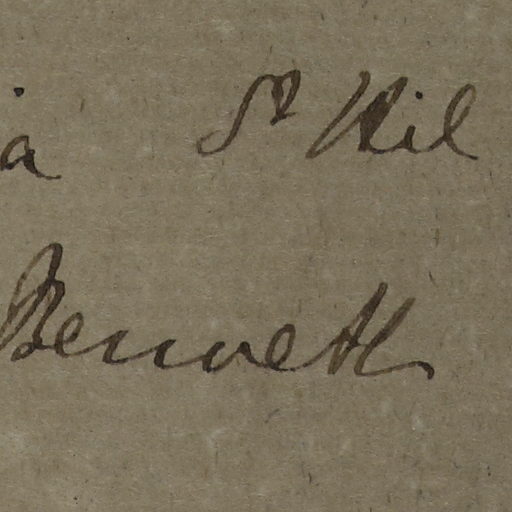 a St Hil
Bennett